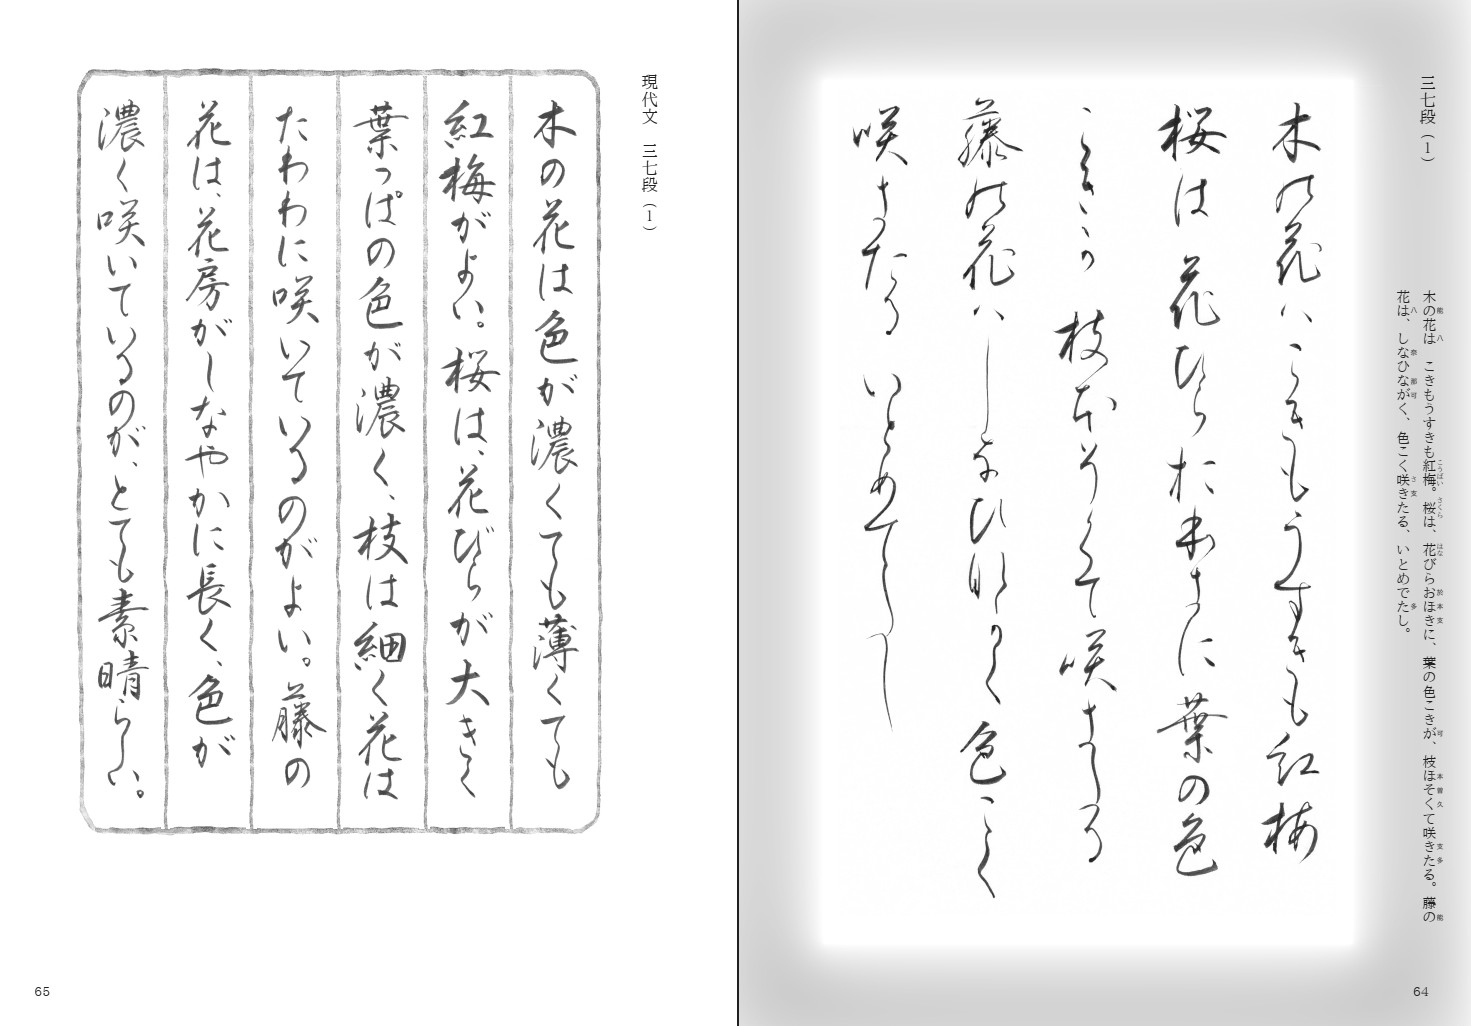 三七段（1）
木の花は　こきもうすきも紅梅。桜は、花びらおほきに、葉の色こきが、枝ほそくて咲きたる。藤の
花は、しなひながく、色こく咲きたる、いとめでたし。
木能花八こきもうすきも紅梅
桜は花ひら於本支に葉の色
こきか枝本曽久て咲支多る
藤能花八し奈ひ那可く色こく
咲支多るいとめてたし
64
現代文　三七段（1）
木の花は色が濃くても薄くても
紅梅がよい。桜は、花びらが大きく
葉っぱの色が濃く、枝は細く花は
たわわに咲いているのがよい。藤の
花は、花房がしなやかに長く、色が
濃く咲いているのが、とても素晴らしい。
65